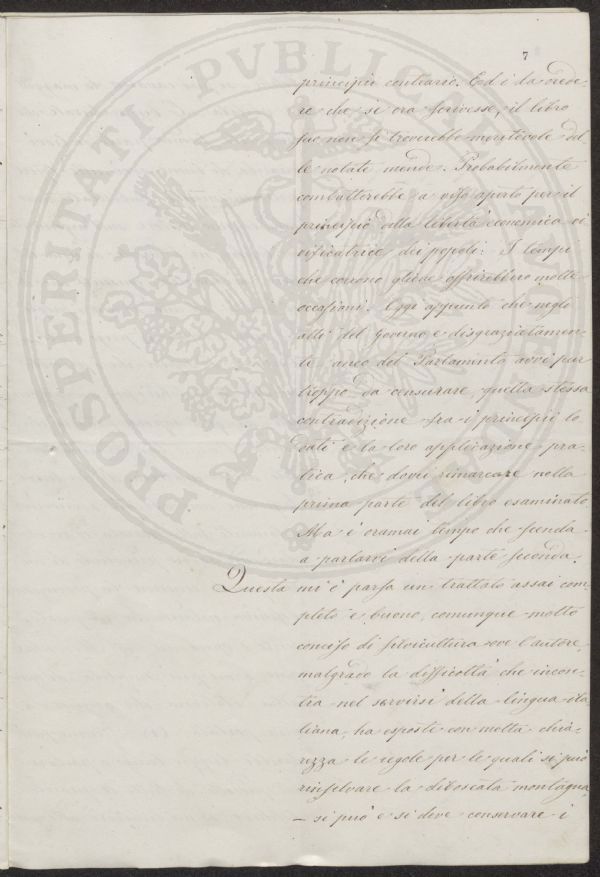 7
principii contrario. Ed è da crede-
re che se ora scrivesse, il libro
suo non si troverebbe meritevole del-
le notate mende. Probabilmente
combatterebbe a viso aperto per il
principio della libertà economica vi-
vificatrice dei popoli: I tempi
che corrono gliene offrirebbero molte
occasioni. Oggi appunto che negli
atti del Governo e disgraziatamen-
te anco del Parlamento avvi pur
troppo da censurare, quella stessa
contradizione fra i principii lo
dati e la loro applicazione pra-
tica, che dovei rimarcare nella
prima parte del libro esaminato
Ma è oramai tempo che scenda
a parlarvi della parte seconda.
Questa mi è parsa un trattato assai com-
pleto e buono, comunque molto
conciso di silvicultura ove l'autore,
malgrado la difficoltà che incon-
tra nel servirsi della lingua ita
liana, ha esposte con molta chia-
rezza le regole per le quali si può
rinselvare la diboscata montagna
— si può e si deve conservare i
PROSPERITATI PVBLICAE